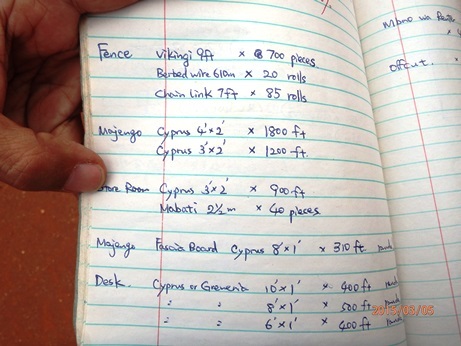 Fence Vikingi 9ft × 700 pieces
Barbed wire 610m × 20 rolls
Chain link 7ft × 85 rolls
Majengo Cyprus 4'×2' × 1800 ft
Cyprus 3'×2' × 1200 ft.
Room Cyprus 3'×2' × 900 ft
Mabati 2½ m × 40 pieces
Majengo Fascia Board Cyprus 8'×1' × 310 ft
Desk. Cyprus or Grevenia 10'×1' × 400 ft
" " 8'×1' × 500 ft
" " 6'×1' × 400 ft
Mbao wa
offcut. ×